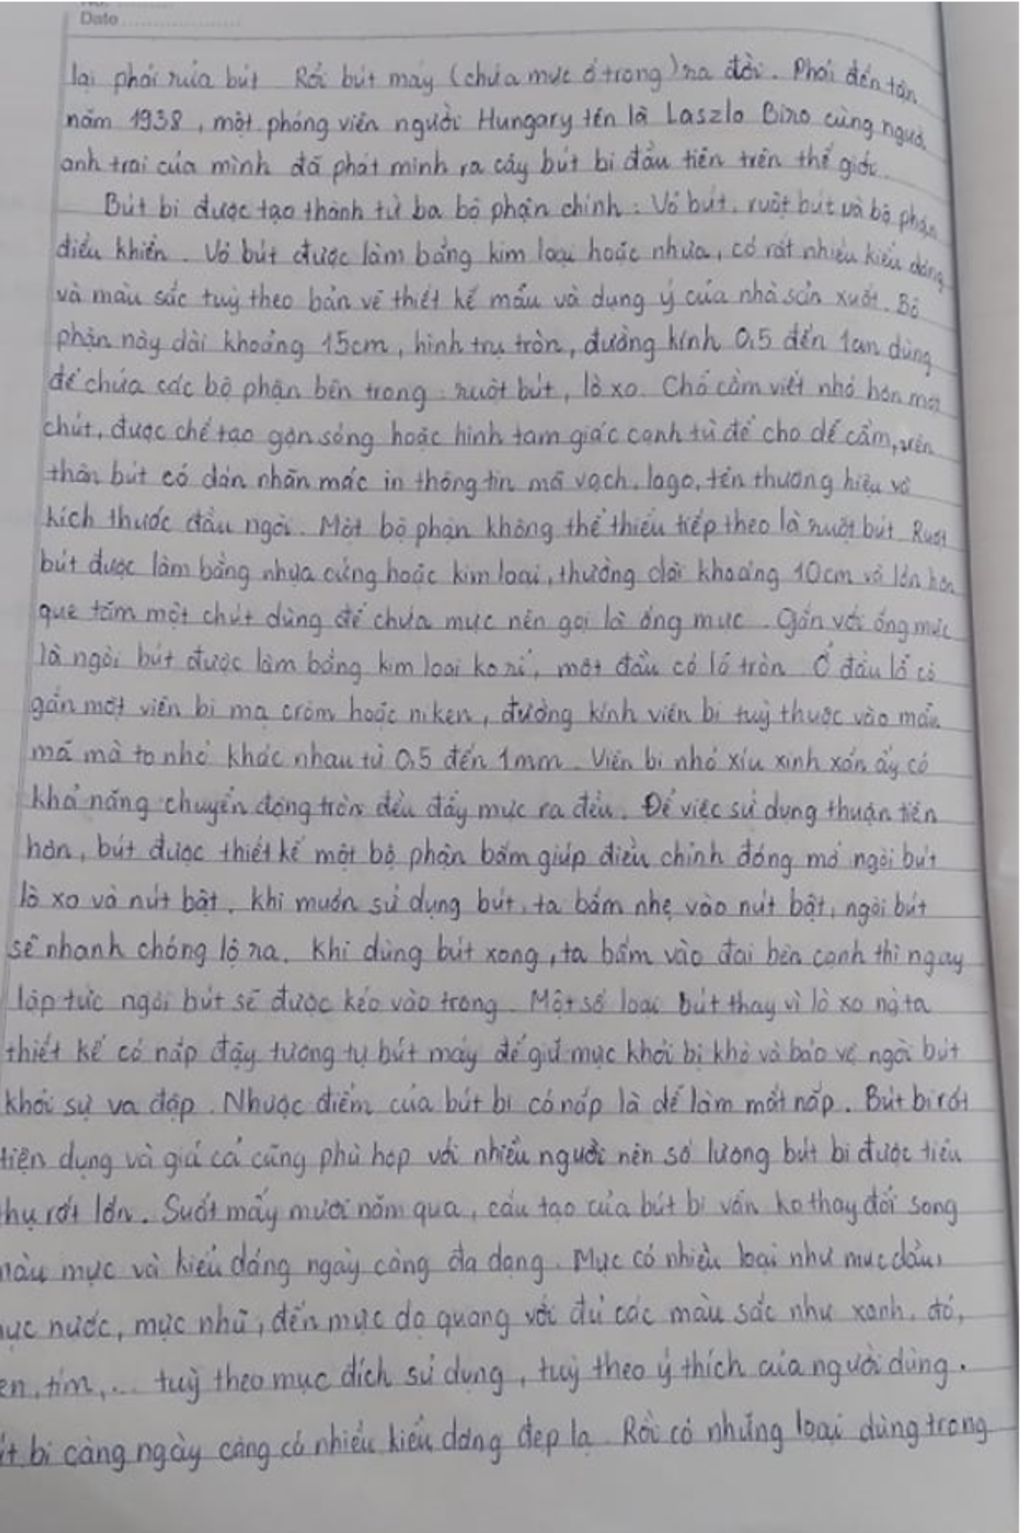 Date
lại phải rửa bút Rồi bút máy (chứa mực ở trong) ra đời. Phải đến tận
năm 1938, một phóng viên người Hungary tên là Laszlo Biro cùng người
anh trai của mình đã phát minh ra cây bút bi đầu tiên trên thế giới.
Bút bi được tạo thành từ ba bộ phận chính: Vỏ bút, ruột bút và bộ phận
điều khiển. Vỏ bút được làm bằng kim loại hoặc nhựa, có rất nhiều kiểu dáng
và màu sắc tuỳ theo bản vẽ thiết kế mẫu và dụng ý của nhà sản xuất. Bộ
phận này dài khoảng 15cm, hình trụ tròn, đường kính 0,5 đến 1cm dùng
để chứa các bộ phận bên trong: ruột bút, lò xo. Chỗ cầm viết nhỏ hơn một
chút, được chế tạo gợn sóng hoặc hình tam giác cạnh tù để cho dễ cầm, trên
thân bút có dán nhãn mác in thông tin mã vạch, logo, tên thương hiệu và
kích thước đầu ngòi. Một bộ phận không thể thiếu tiếp theo là ruột bút Ruột
bút được làm bằng nhựa cứng hoặc kim loại, thường dài khoảng 10cm và lớn hơn
que tăm một chút dùng để chứa mực nên gọi là ống mực. Gắn với ống mực
là ngòi bút được làm bằng kim loại ko rỉ, một đầu có lỗ tròn. Ở đầu lỗ có
gắn một viên bi mạ crôm hoặc niken, đường kính viên bi tuỳ thuộc vào mẫu
mã mà to nhỏ khác nhau từ 0,5 đến 1mm. Viên bi nhỏ xíu xinh xắn ấy có
khả năng chuyển động tròn đều đẩy mực ra đều. Để việc sử dụng thuận tiện
hơn, bút được thiết kế một bộ phận bấm giúp điều chỉnh đóng mở ngòi bút
lò xo và nút bật. Khi muốn sử dụng bút, ta bấm nhẹ vào nút bật, ngòi bút
sẽ nhanh chóng lộ ra. Khi dùng bút xong, ta bấm vào đai bên cạnh thì ngay
lập tức ngòi bút sẽ được kéo vào trong. Một số loại bút thay vì lò xo ng ta
thiết kế có nắp đậy tương tự bút máy để giữ mực khỏi bị khô và bảo vệ ngòi bút
khỏi sự va đập. Nhược điểm của bút bi có nắp là dễ làm mất nắp. Bút bi rất
tiện dụng và giá cả cũng phù hợp với nhiều người nên số lượng bút bi được tiêu
thụ rất lớn. Suốt mấy mươi năm qua, cấu tạo của bút bi vẫn ko thay đổi song
màu mực và kiểu dáng ngày càng đa dạng. Mực có nhiều loại như mực dầu,
mực nước, mực nhũ, đến mực dạ quang với đủ các màu sắc như xanh, đỏ,
en, tím,... tuỳ theo mục đích sử dụng, tuỳ theo ý thích của người dùng.
út bi càng ngày càng có nhiều kiểu dáng đẹp lạ. Rồi có những loại dùng trong